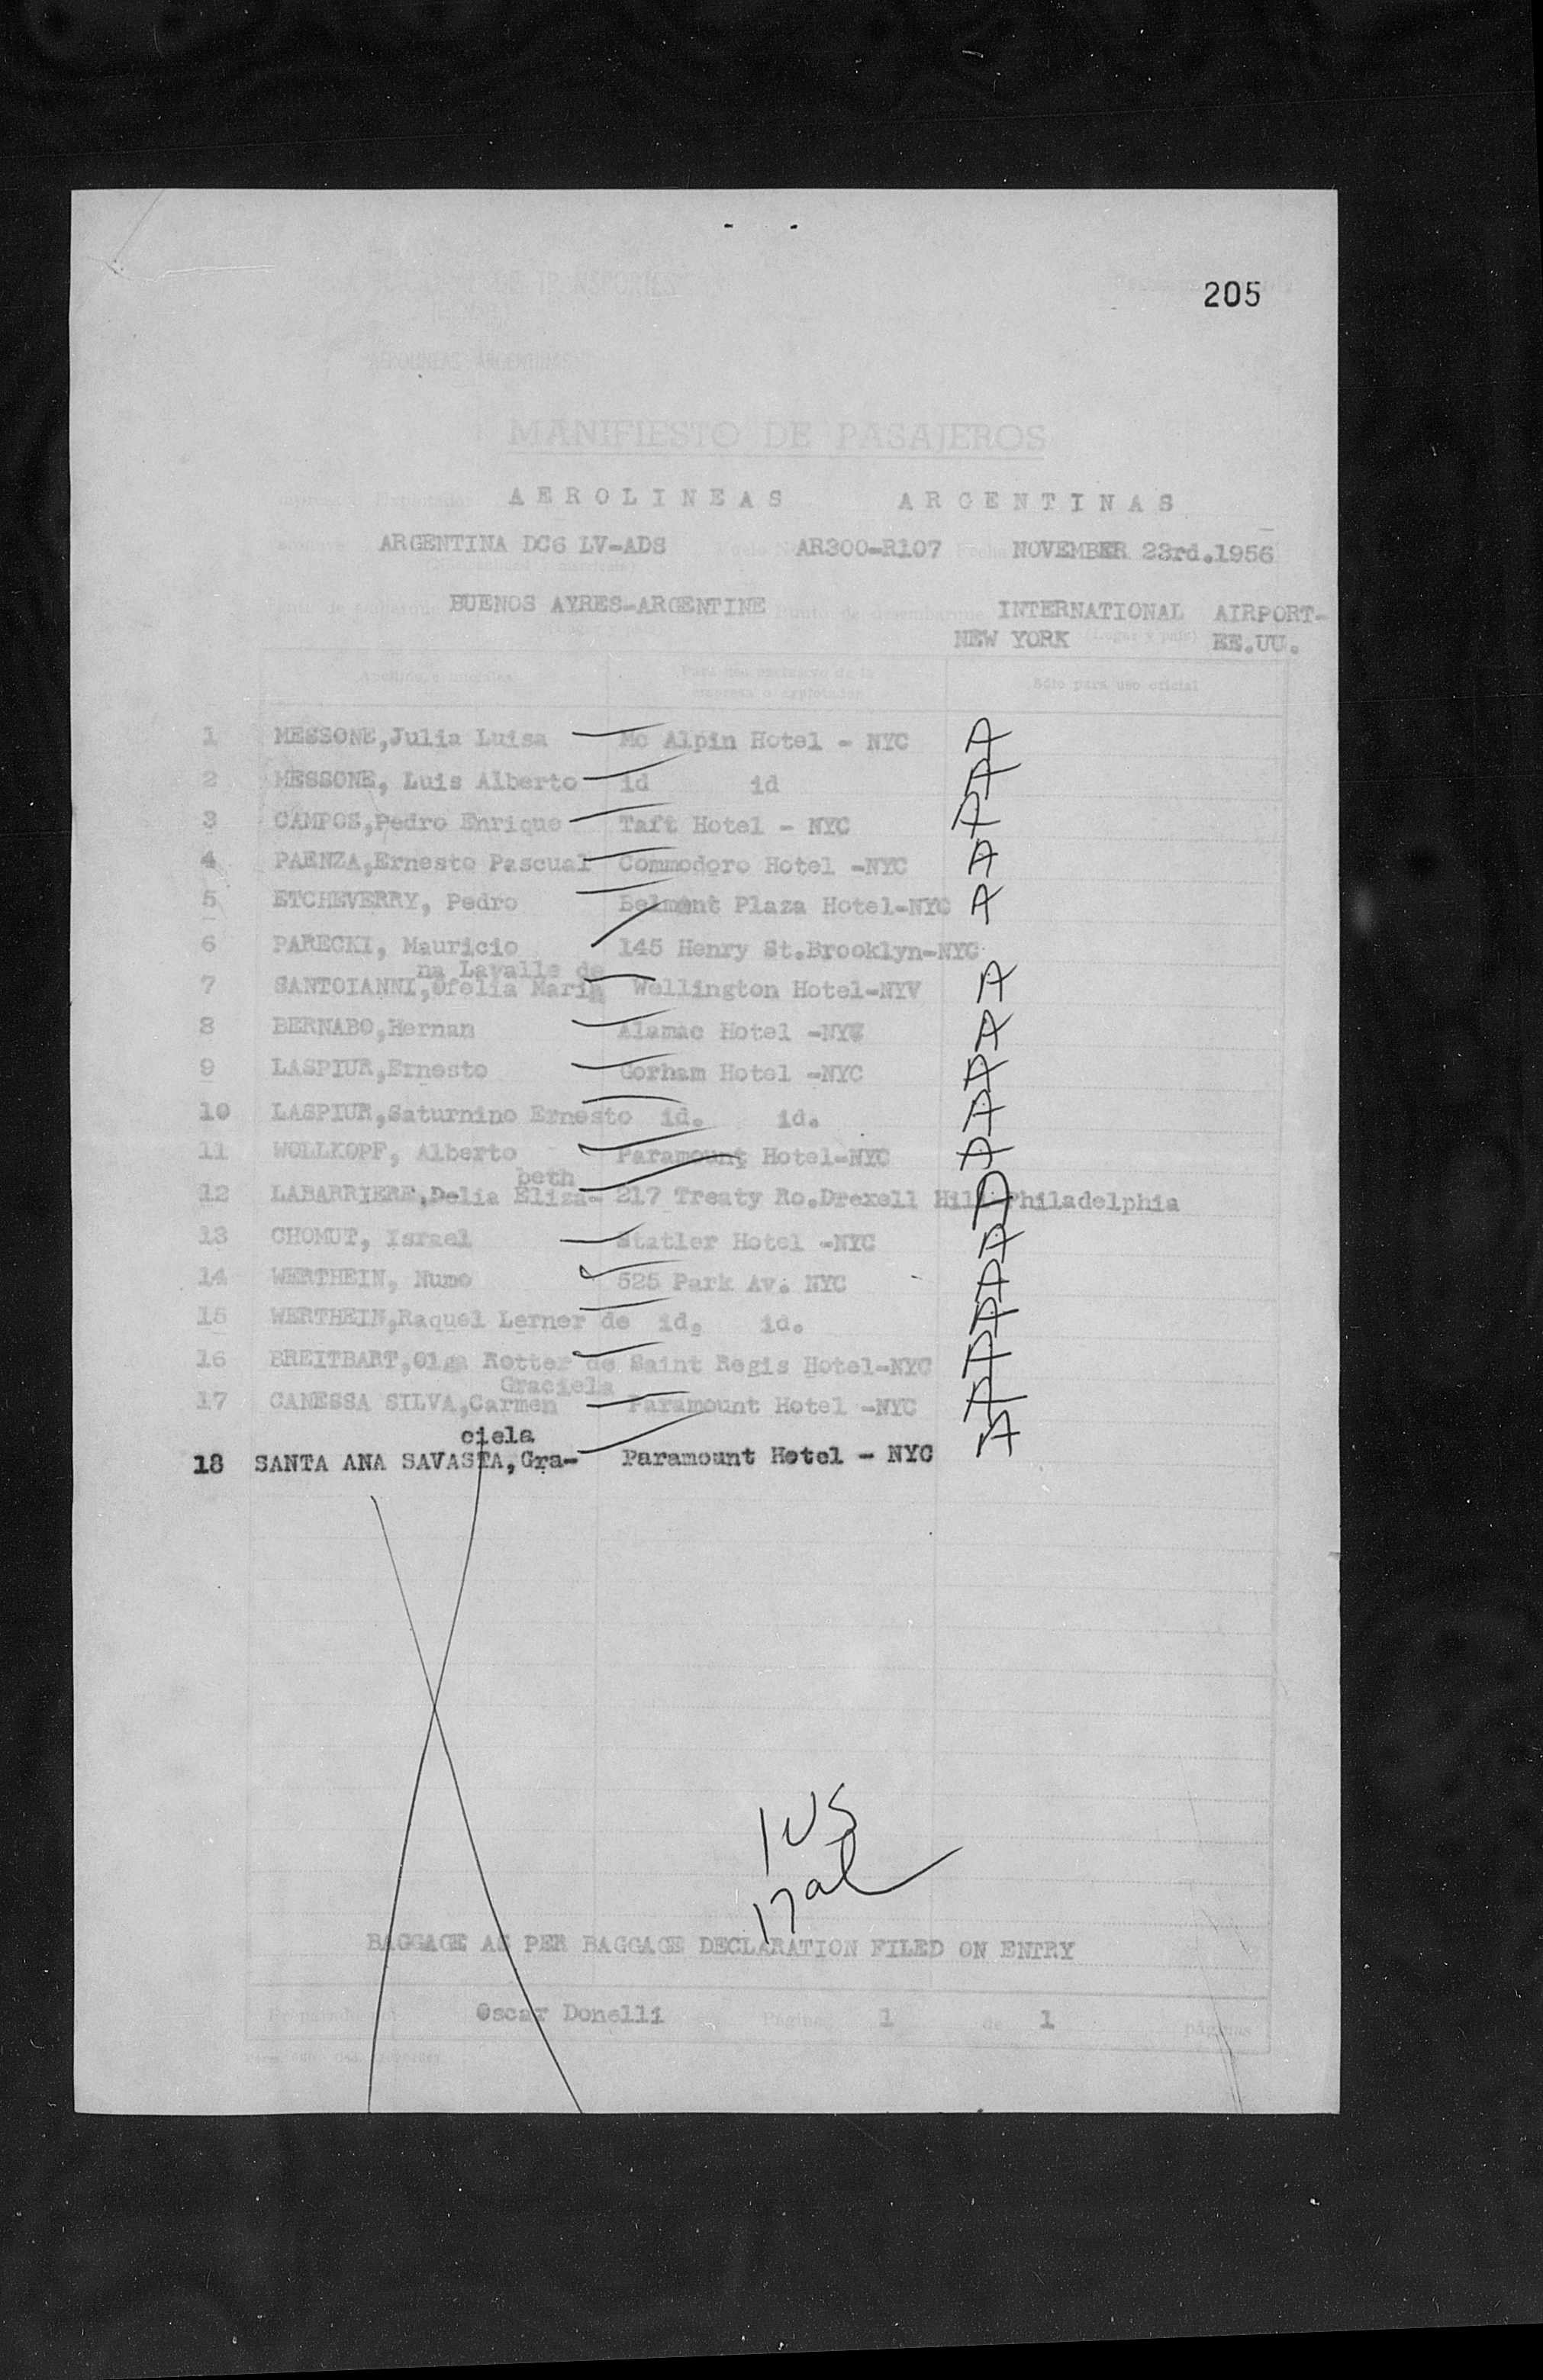 205
TRANSPORTES
AEROLINEAS ARGENTINAS
MANIFIESTO DE PASAJEROS
AEROLINEAS ARGENTINAS
ARGENTINA DC6 LV-ADS AR300-R107 Fecha NOVEMBER 23rd.1956
BUENOS AYRES-ARGENTINE Punto de desembarque INTERNATIONAL AIRPORT-
NEW YORK (Lugar y país) EE.UU.
Apellido e iniciales Para uso exclusivo de la
empresa o explotador Sólo para uso oficial
1 MESSONE,Julia Luisa Mc Alpin Hotel - NYC A
2 MESSONE, Luis Alberto id id A
3 CAMPOS,Pedro Enrique Taft Hotel - NYC A
4 PAENZA,Ernesto Pascual Commodoro Hotel -NYC A
5 ETCHEVERRY, Pedro Belmont Plaza Hotel-NYC A
6 PARECKI, Mauricio 145 Henry St.Brooklyn-NYC
na Lavalle de
7 SANTOIANNI,Ofelia Maria Wellington Hotel-NYV A
8 BERNABO,Hernan Alamac Hotel -NYC A
9 LASPIUR,Ernesto Gorham Hotel -NYC A
10 LASPIUR,Saturnino Ernesto id. id. A
11 WOLLKOPF, Alberto Paramount Hotel-NYC A
beth
12 LABARRIERE,Delia Eliza- 217 Treaty Ro.Drexell Hill Philadelphia A
13 CHOMUT, Israel Statler Hotel -NYC A
14 WERTHEIN, Numo 525 Park Av. NYC A
15 WERTHEIN,Raquel Lerner de id. id. A
16 BREITBART,Olga Rotter de Saint Regis Hotel-NYC A
Graciela
17 CANESSA SILVA,Carmen Paramount Hotel -NYC A
ciela
18 SANTA ANA SAVASTA,Gra- Paramount Hotel - NYC A
1 US
17 al
BAGGAGE AS PER BAGGAGE DECLARATION FILED ON ENTRY
Oscar Donelli Página 1 de 1 páginas